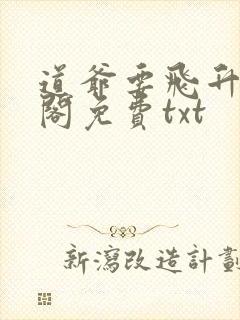 道爺要飛升
閣免費txt
新瀉改造計劃